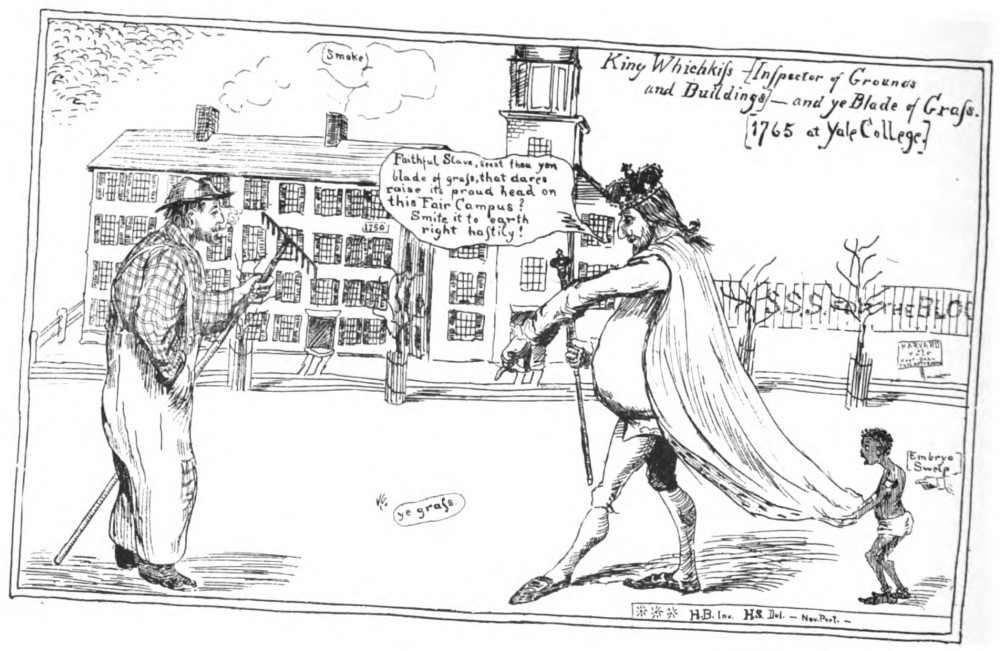 Smoke
King Whichkiſs [Inſpector of Grounds
and Buildings]— and ye Blade of Graſs.
[1765 at Yale College.]
Faithful Slave, seest thou yon
blade of graſs, that dares
raise its proud head on
this Fair Campus?
Smite it to earth
right haſtily!
1750
S.S.S. FOR THE BLOO
HARVARD
Embryo
Sweep
ye graſs
H.B. Inv. H.S. Del. — Nov. Port. —